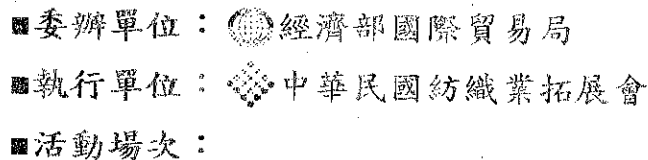 ■委辦單位：經濟部國際貿易局
■執行單位：中華民國紡織業拓展會
■活動場次：